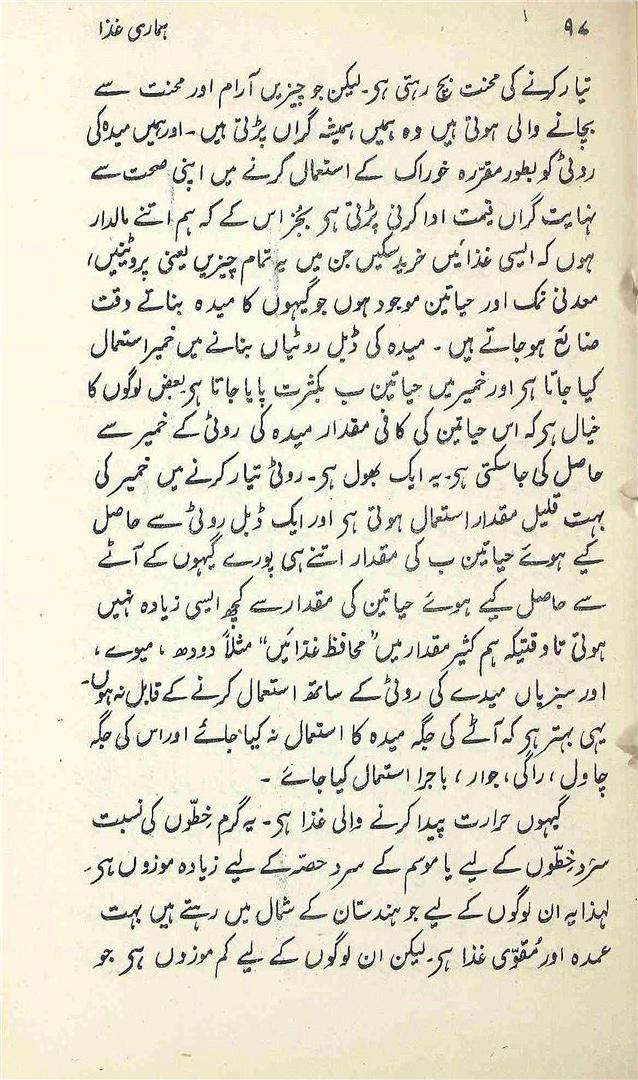 ۹۶ ہماری غذا
تیار کرنے کی محنت بچ رہتی ہی۔ لیکن جو چیزیں آرام اور محنت سے
بچانے والی ہوتی ہیں وہ ہمیں ہمیشہ گراں پڑتی ہیں۔ اور ہمیں میدہ کی
روٹی کو بطور مقرّرہ خوراک کے استعمال کرنے میں اپنی صحت سے
نہایت گراں قیمت ادا کرنی پڑتی ہی بجُز اس کے کہ ہم اتنے مالدار
ہوں کہ ایسی غذائیں خرید سکیں جن میں یہ تمام چیزیں یعنی پروٹینیں،
معدنی نمک اور حیاتین موجود ہوں جو گیہوں کا میدہ بناتے وقت
ضائع ہوجاتے ہیں۔ میدہ کی ڈبل روٹیاں بنانے میں خمیر استعمال
کیا جاتا ہی اور خمیر میں حیاتین ب بکثرت پایا جاتا ہی بعض لوگوں کا
خیال ہی کہ اس حیاتین کی کافی مقدار میدہ کی روٹی کے خمیر سے
حاصل کی جاسکتی ہی۔ یہ ایک بھول ہی۔ روٹی تیار کرنے میں خمیر کی
بہت قلیل مقدار استعمال ہوتی ہی اور ایک ڈبل روٹی سے حاصل
کیے ہوئے حیاتین ب کی مقدار اتنے ہی پورے گیہوں کے آٹے
سے حاصل کیے ہوئے حیاتین کی مقدار سے کچھ ایسی زیادہ نہیں
ہوتی تاوقتیکہ ہم کثیر مقدار میں "محافظ غذائیں" مثلاً دودھ، میوے،
اور سبزیاں میدے کی روٹی کے ساتھ استعمال کرنے کے قابل نہ ہوں۔
یہی بہتر ہی کہ آٹے کی جگہ میدہ کا استعمال نہ کیا جائے اور اس کی جگہ
چاول، راگی، جوار، باجرا استعمال کیا جائے۔
گیہوں حرارت پیدا کرنے والی غذا ہی۔ یہ گرم خِطّوں کی نسبت
سرد خِطّوں کے لیے یا موسم کے سرد حصّہ کے لیے زیادہ موزوں ہی۔
لہذا یہ ان لوگوں کے لیے جو ہندستان کے شمال میں رہتے ہیں بہت
عمدہ اور مُقوّی غذا ہی۔ لیکن ان لوگوں کے لیے کم موزوں ہی جو